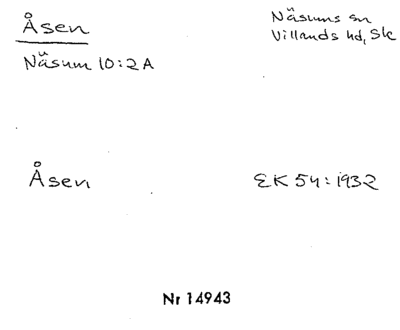 Åsen
Näsums sn
Villands hd, Sk
Näsum 10:2 A
Åsen
EK 54:1932
Nr 14943